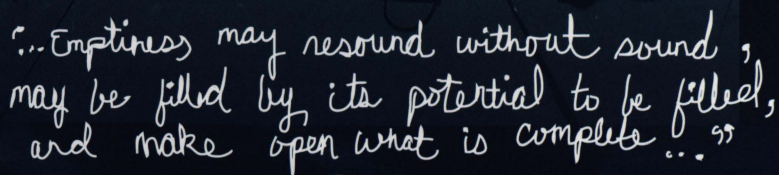 "...Emptiness may resound without sound,
may be filled by its potential to be filled,
and make open what is complete..."